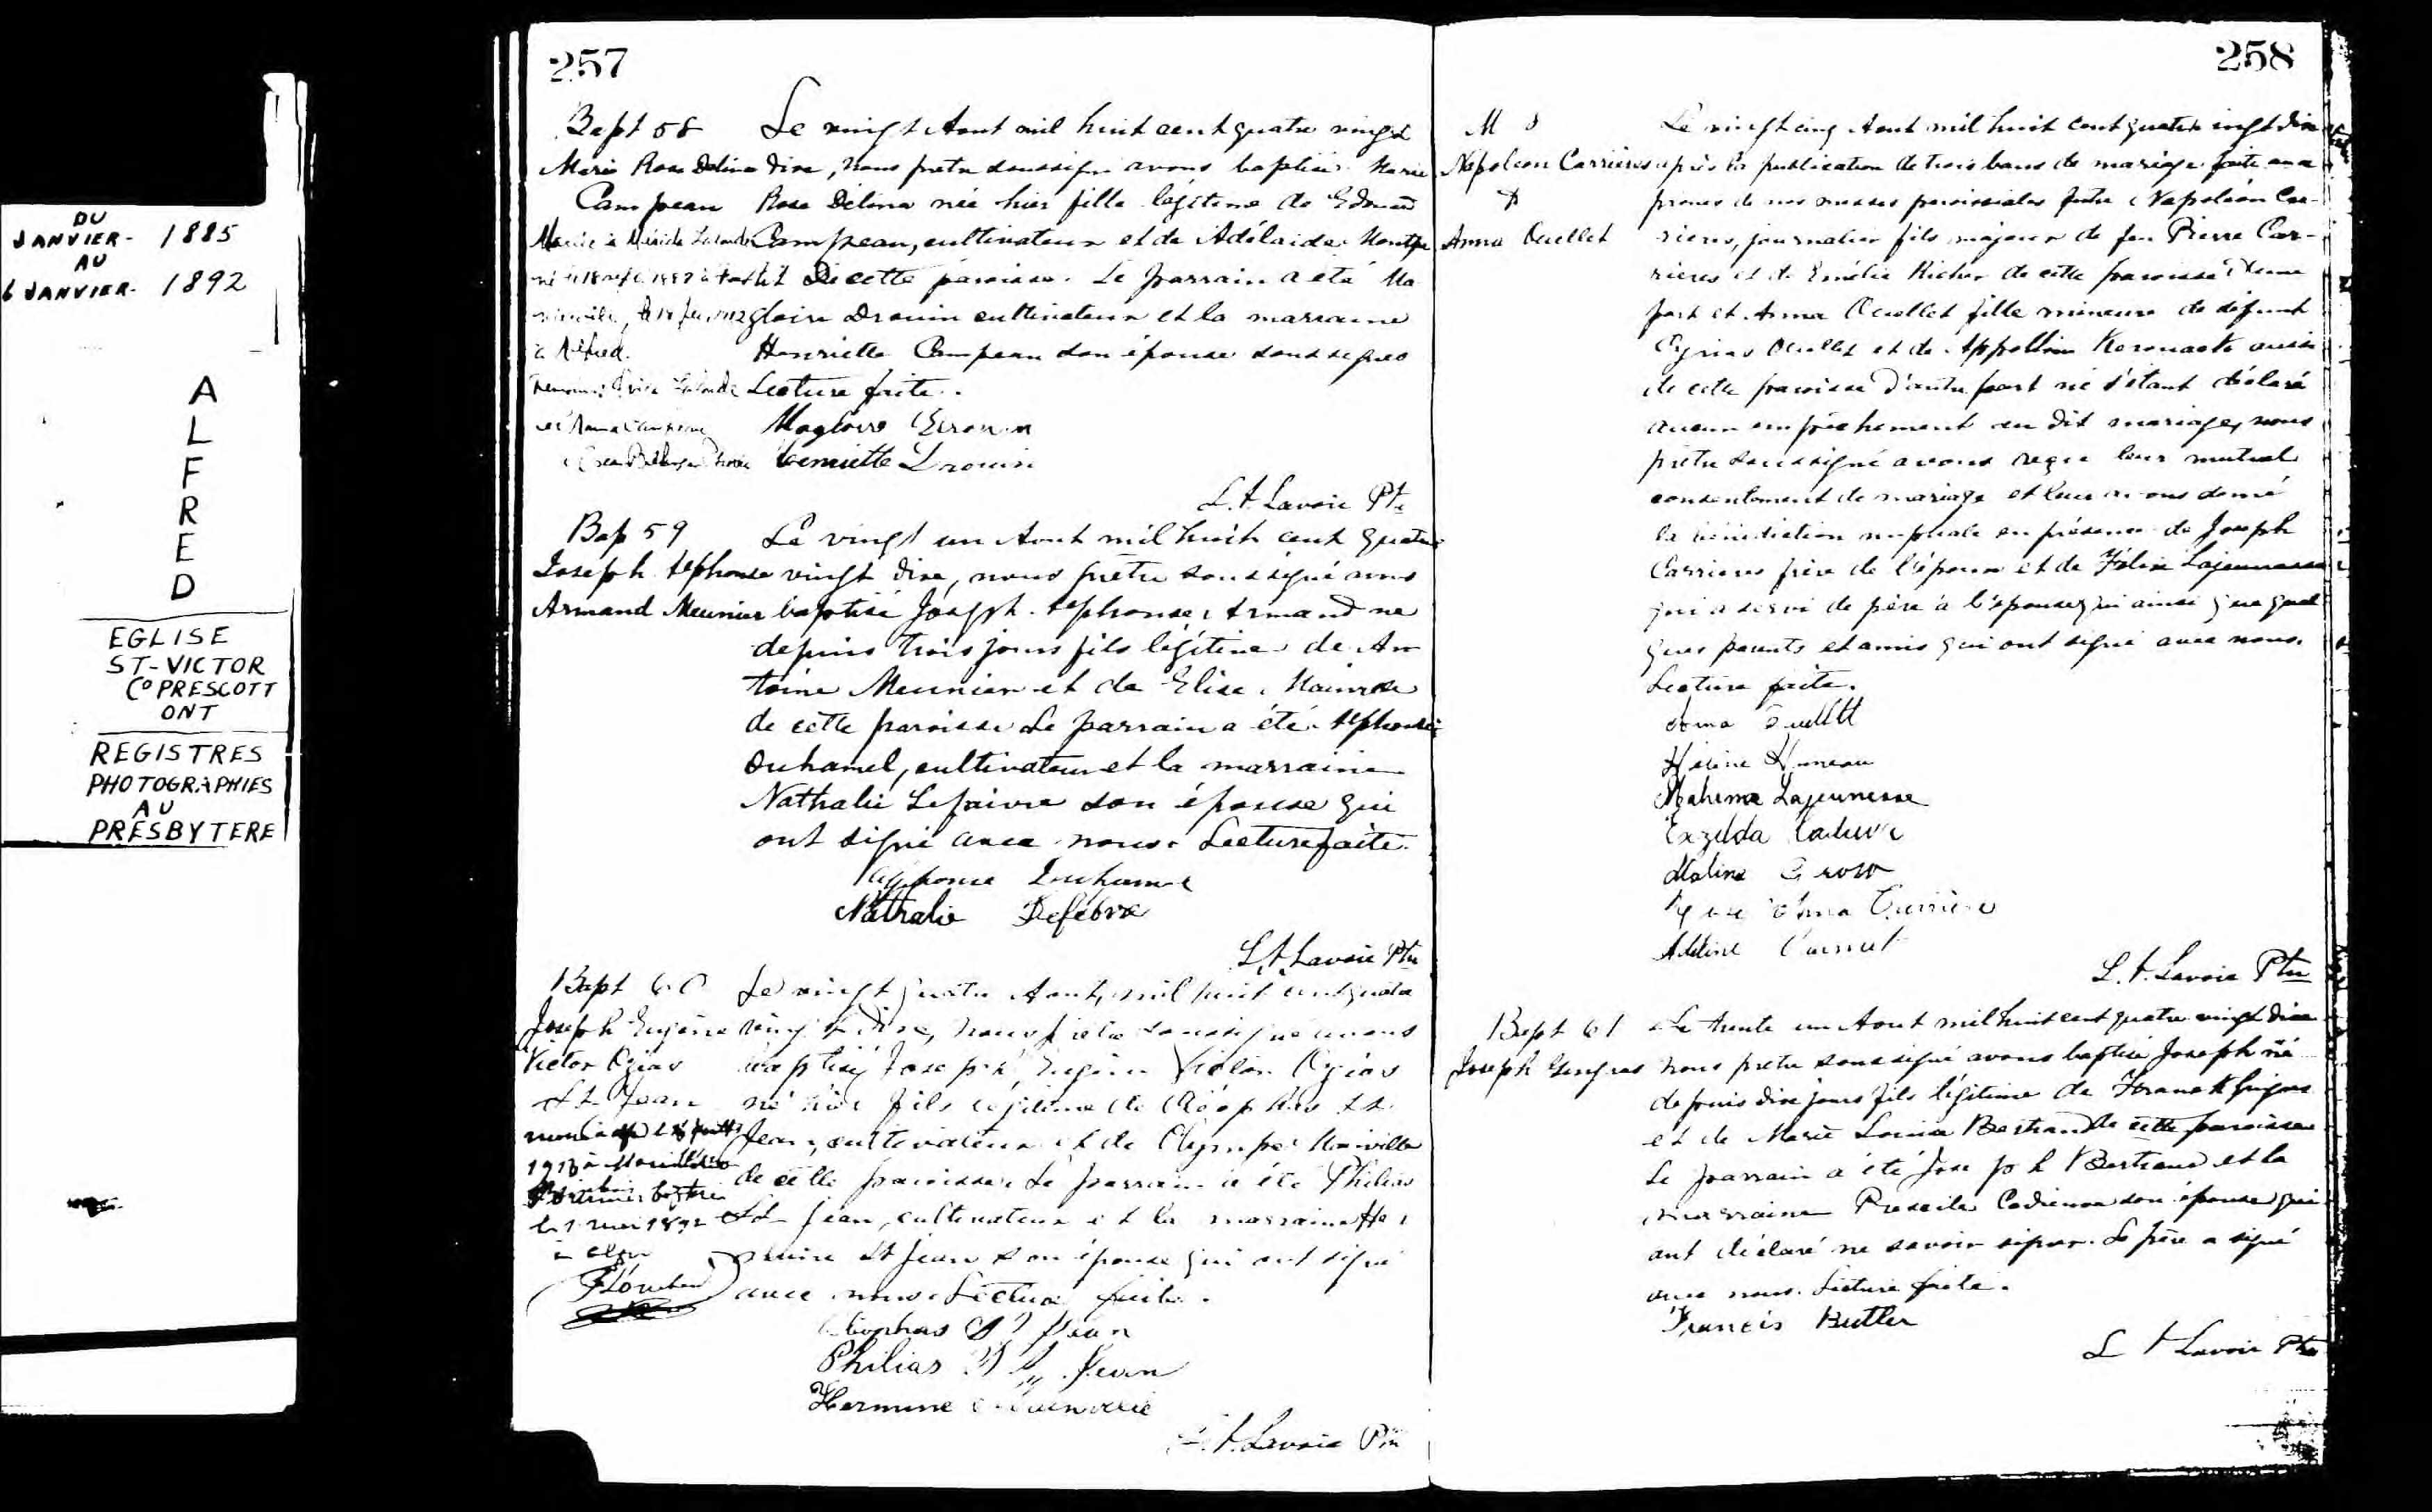 DU
JANVIER - 1885
AU
6 JANVIER - 1892
A
L
F
R
E
D
EGLISE
ST-VICTOR
Co PRESCOTT
ONT
REGISTRES
PHOTOGRAPHIES
AU
PRESBYTERE
257
Bapt 58
Marie Rose Delina
Campeau
Marié à
à Alfred.
Le vingt Aout mil huit cent quatre vingt
dix, nous prêtre soussigné avons baptisé Marie
Rose Délina née hier fille légitime de Edouard
Campeau, cultivateur et de Adélaide
De cette paroisse. Le parrain a été Ma
gloire Drouin cultivateur et la marraine
Henriette Campeau son épouse soussignés
Lecture faite.
Magloire Drouin
Henriette Drouin
L. A. Lavoie Ptr
Bap 59
Joseph Alphonse
Armand Meunier
Le vingt un Aout mil huit cent quatre
vingt dix, nous prêtre soussigné avons
baptisé Joseph Alphonse Armand né
depuis trois jours fils légitime de An
toine Meunier et de Elise
de cette paroisse Le parrain a été Alphonse
Duhamel, cultivateur et la marraine
Nathalie Lefaivre son épouse qui
ont signé avec nous. Lecture faite.
Alphonse Duhamel
Nathalie Lefebvre
L. A. Lavoie Ptre
Bapt 60
Joseph Eugène
Victor Ozias
St Jean
le 1 mai 1892
Le vingt quatre Aout, mil huit cent quatre
vingt dix, nous prêtre soussigné avons
baptisé Joseph Eugène Victor Ozias
né hier fils légitime de Cléophas St
Jean, cultivateur et de Olympe Mainville
de cette paroisse Le parrain a été Philias
St Jean, cultivateur et la marraine Her
mine St Jean son épouse qui ont signé
avec nous. Lecture faite.
Cléophas St Jean
Philias St Jean
Hermine Mainville
L. A. Lavoie Ptr
258
M 8
Napoléon Carrières
&
Anna Ouellet
Le vingt cinq Aout mil huit cent quatre vingt dix
après la publication de trois bans de mariage faite aux
prones de nos messes paroissiales entre Napoléon Car-
rières, journalier fils majeur de feu Pierre Car-
rières et de Emélie Richer de cette paroisse d'une
part et Anna Ouellet fille mineure de défunt
Cyrias Ouellet et de Appolline Kerouack aussi
de cette paroisse d'autre part ne s'étant déclaré
aucun empêchement au dit mariage, nous
prêtre soussigné avons reçu leur mutuel
consentement de mariage et leur avons donné
la bénédiction nuptiale en présence de Joseph
Carrieres frère de l'époux et de Félix Lajeunesse
qui a servi de père à l'épouse qui ainsi que quel
ques parents et amis qui ont signé avec nous.
Lecture faite.
Anna Ouellet
Lajeunesse
Exzilda
Rose Anna Carrière
Adeline
L. A. Lavoie Ptre
Bapt 61
Joseph Gingras
Le trente un Aout mil huit cent quatre vingt dix
nous prêtre soussigné avons baptisé Joseph né
depuis dix jours fils légitime de Frank Gingras
et de Marie Louise Bertrand de cette paroisse
Le parrain a été Joseph Bertrand et la
marraine son épouse qui
ont déclaré ne savoir signer. Le père a signé
avec nous. Lecture faite.
Francis Butler
L A Lavoie Ptr